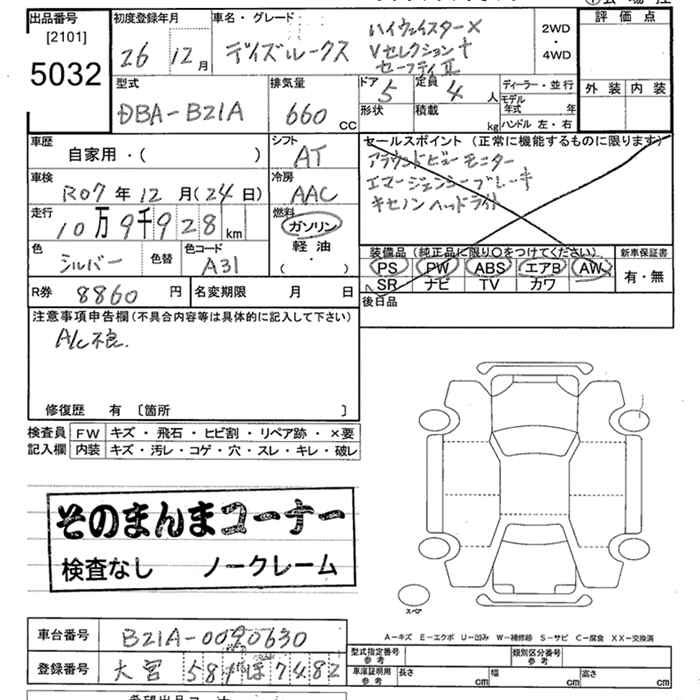 出品番号 [2101] 5032
初度登録年月 26 12月
車名・グレード デイズルークス
ハイウェイスターX
Vセレクション+
セーフティII
2WD・4WD
評価点
外装 内装
型式 DBA-B21A
排気量 660 CC
ドア 5 定員 4 人
形状 積載 kg
ディーラー・並行
モデル年式 年
ハンドル 左・右
車歴 自家用・( )
シフト AT
車検 R07年12月(24日)
冷房 AAC
走行 10万9千928km
燃料 ガソリン 軽油・( )
色 シルバー 色替 色コード A31
R券 8860円
名変期限 月 日
セールスポイント(正常に機能するものに限ります)
アラウンドビューモニター
エマージェンシーブレーキ
キセノンヘッドライト
装備品(純正品に限り○をつけてください。)
PS PW ABS エアB AW
SR ナビ TV カワ
新車保証書 有・無
後日品
注意事項申告欄(不具合内容等は具体的に記入して下さい)
A/C不良.
修復歴 有 〔箇所 〕
検査員記入欄
FW キズ・飛石・ヒビ割・リペア跡・×要
内装 キズ・汚レ・コゲ・穴・スレ・キレ・破レ
そのまんまコーナー
検査なし ノークレーム
スペア
A-キズ E-エクボ U-凹み W-補修跡 S-サビ C-腐食 XX-交換済
車台番号 B21A-0090630
登録番号 大宮 581 ほ 7482
型式指定番号 参考
類別区分番号 参考
車庫証明用 参考 長さ cm 幅 cm 高さ cm